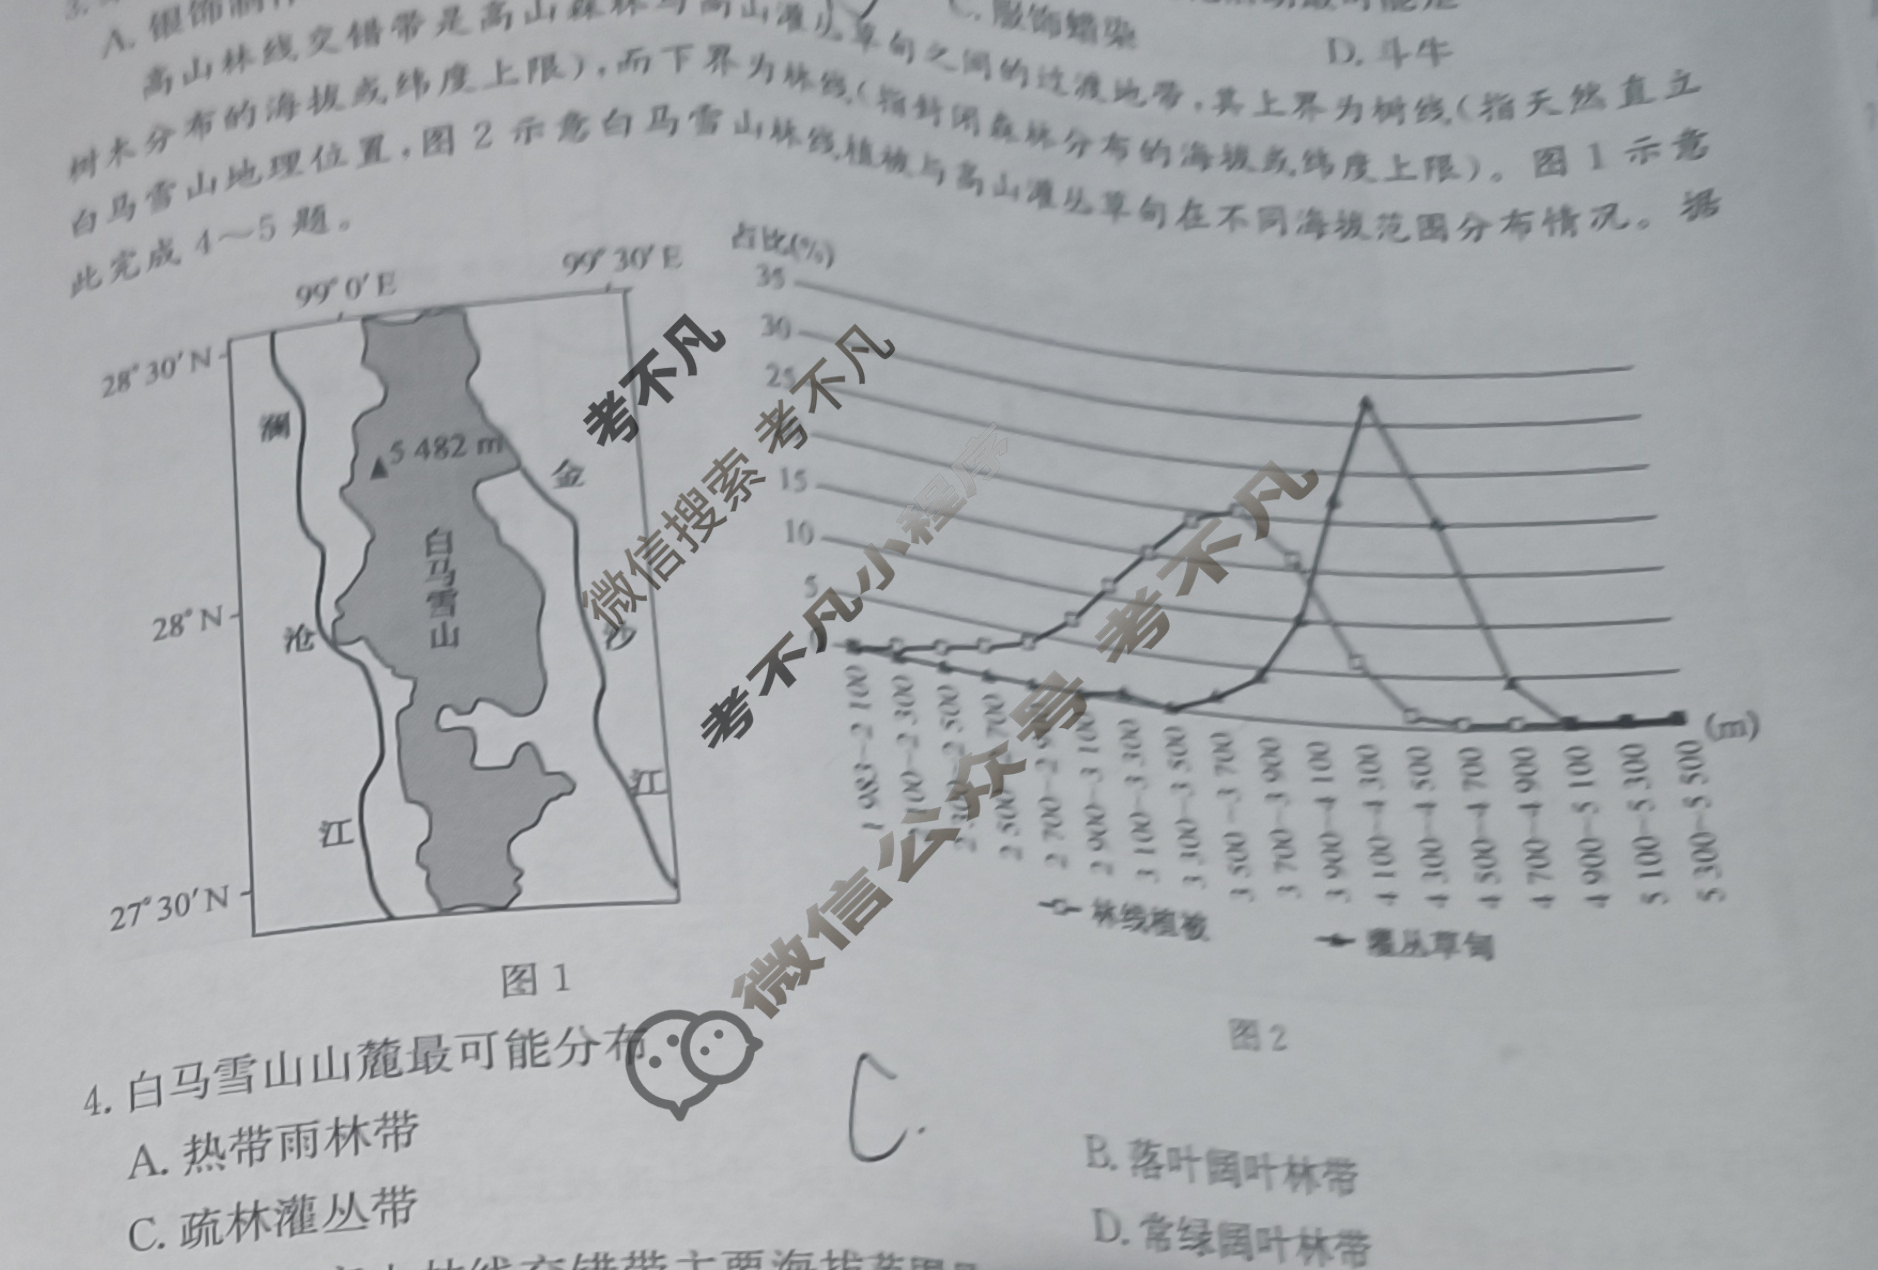 A. 银饰制作
C. 服饰蜡染
D. 斗牛
高山林线交错带是高山森林与高山灌丛草甸之间的过渡地带，其上界为树线(指天然直立
树木分布的海拔或纬度上限)，而下界为林线(指封闭森林分布的海拔或纬度上限)。图 1 示意
白马雪山地理位置，图 2 示意白马雪山林线植被与高山灌丛草甸在不同海拔范围分布情况。据
此完成 4～5 题。
99°0′E
99°30′E
28°30′N
28°N
27°30′N
澜
沧
江
金
沙
江
5 482 m
白马雪山
图 1
占比(%)
35
30
25
15
10
5
1 983—2 100
2 100—2 300
2 300—2 500
2 500—2 700
2 700—2 900
2 900—3 100
3 100—3 300
3 300—3 500
3 500—3 700
3 700—3 900
3 900—4 100
4 100—4 300
4 300—4 500
4 500—4 700
4 700—4 900
4 900—5 100
5 100—5 300
5 300—5 500
(m)
林线植被
灌丛草甸
图 2
考不凡
微信搜索 考不凡
考不凡小程序
微信公众号 考不凡
4. 白马雪山山麓最可能分布
C.
A. 热带雨林带
B. 落叶阔叶林带
C. 疏林灌丛带
D. 常绿阔叶林带
林线交错带主要海拔范围是